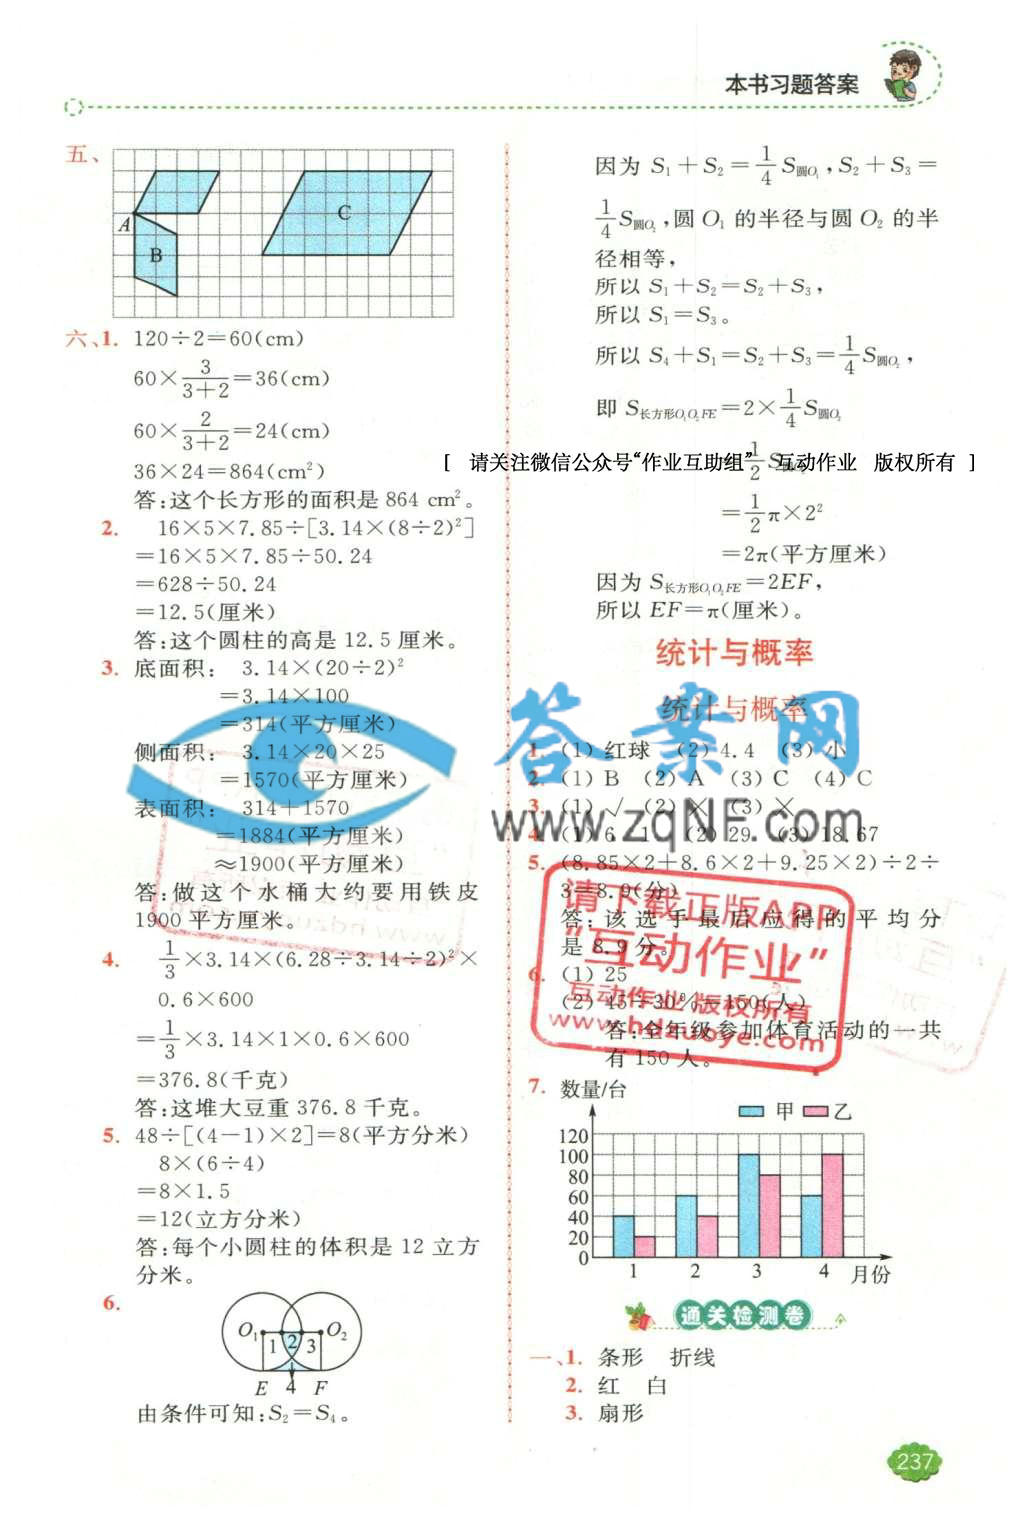 本书习题答案
五、
A
B
C
六、1. 120÷2=60(cm)
60×3/(3+2)=36(cm)
60×2/(3+2)=24(cm)
36×24=864(cm²)
答:这个长方形的面积是 864 cm²。
2. 16×5×7.85÷[3.14×(8÷2)²]
=16×5×7.85÷50.24
=628÷50.24
=12.5(厘米)
答:这个圆柱的高是 12.5 厘米。
3. 底面积: 3.14×(20÷2)²
=3.14×100
=314(平方厘米)
侧面积: 3.14×20×25
=1570(平方厘米)
表面积: 314+1570
=1884(平方厘米)
≈1900(平方厘米)
答:做这个水桶大约要用铁皮
1900 平方厘米。
4. 1/3×3.14×(6.28÷3.14÷2)²×
0.6×600
=1/3×3.14×1×0.6×600
=376.8(千克)
答:这堆大豆重 376.8 千克。
5. 48÷[(4-1)×2]=8(平方分米)
8×(6÷4)
=8×1.5
=12(立方分米)
答:每个小圆柱的体积是 12 立方
分米。
6.
O₁ 1 2 3 O₂
E 4 F
由条件可知:S₂=S₄。
因为 S₁+S₂=1/4 S圆O₁,S₂+S₃=
1/4 S圆O₂,圆 O₁ 的半径与圆 O₂ 的半
径相等,
所以 S₁+S₂=S₂+S₃,
所以 S₁=S₃。
所以 S₄+S₁=S₂+S₃=1/4 S圆O₂,
即 S长方形O₁O₂FE=2×1/4 S圆O₂
[ 请关注微信公众号“作业互助组” 互动作业 版权所有 ]
=1/2π×2²
=2π(平方厘米)
因为 S长方形O₁O₂FE=2EF,
所以 EF=π(厘米)。
统计与概率
统计与概率
1. (1)红球 (2)4.4 (3)小
2. (1)B (2)A (3)C (4)C
3. (1)√ (2)× (3)×
4. (1)6 1 (2)29 (3)18.67
5. (8.85×2+8.6×2+9.25×2)÷2÷
3=8.9(分)
答:该选手最后应得的平均分
是 8.9 分。
6. (1)25
(2)45÷30%=150(人)
答:全年级参加体育活动的一共
有 150 人。
答案网
www.zqNF.com
请下载正版APP
“互动作业”
互动作业 版权所有
www.hdzuoye.com
7. 数量/台
甲 乙
120
100
80
60
40
20
0
1 2 3 4 月份
通关检测卷
一、1. 条形 折线
2. 红 白
3. 扇形
237